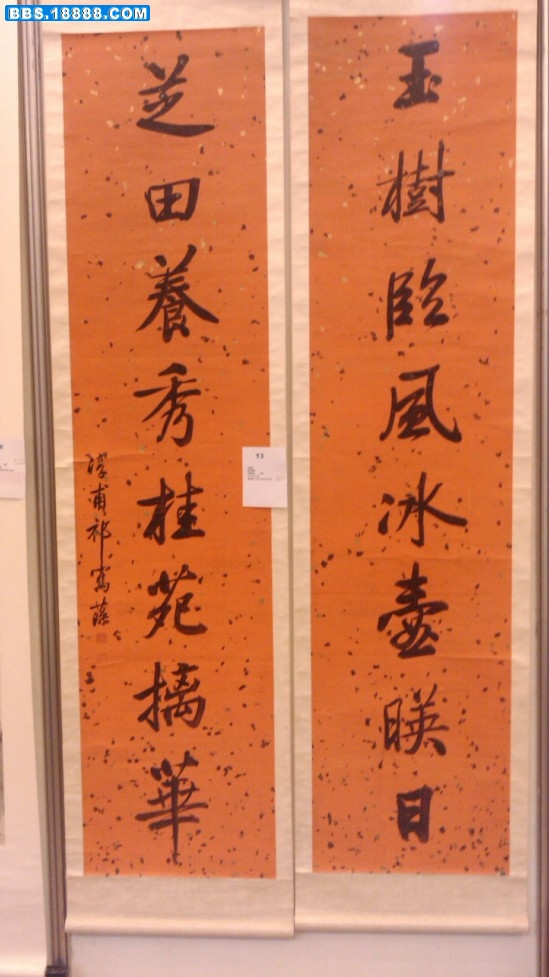 BBS.18888.COM
玉樹臨風冰壺暎日
芝田養秀桂苑摛華
淳甫祁寯藻
13